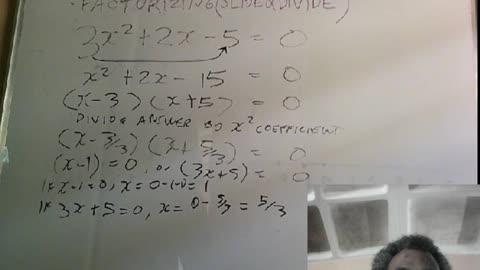 FACTORIZING (SLIDE & DIVIDE)
3x² + 2x - 5 = 0
x² + 2x - 15 = 0
(x - 3) (x + 5) = 0
DIVIDE ANSWER BY x² COEFFICIENT
(x - 3/3) (x + 5/3) = 0
(x - 1) = 0, or (3x + 5) = 0
x - 1 = 0, x =
3x + 5 = 0, x = 0 - 5/3 = 5/3